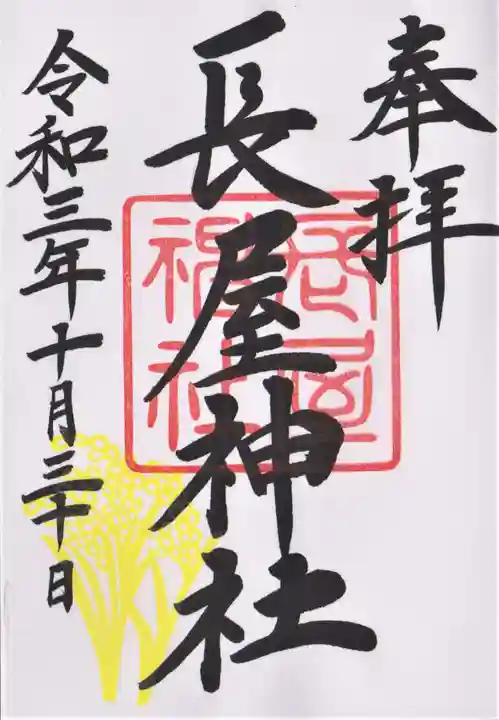 奉拝
長屋神社
令和三年十月三十日
長屋
神社